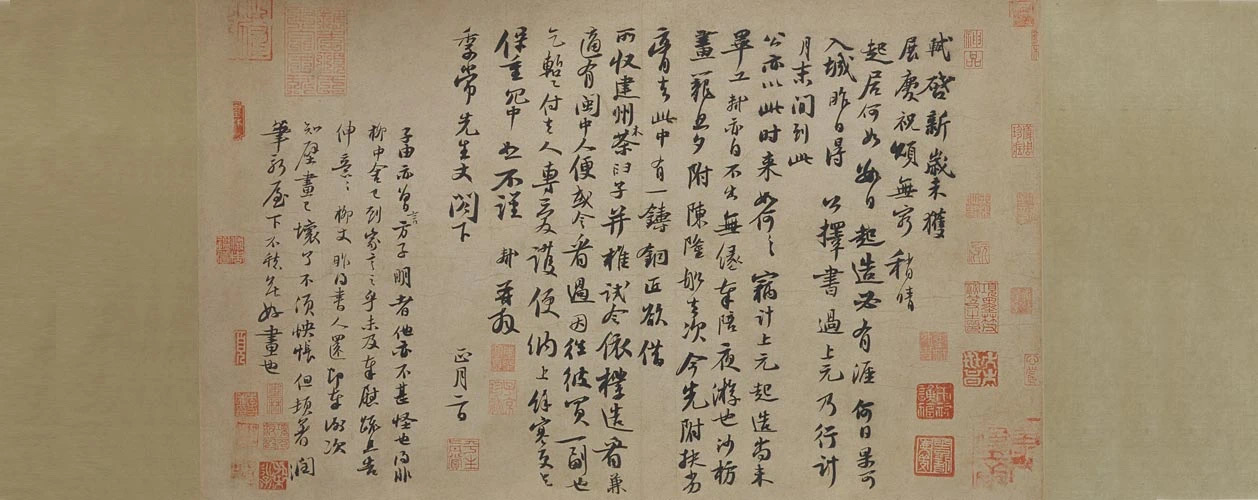 軾啓新歲未獲
展慶祝頌無窮稍晴
起居何如數日起造必有涯何日果可
入城昨日得公擇書過上元乃行計
月末間到此
公亦以此時来如何々竊計上元起造尚未
畢工軾亦自不出無緣奉陪夜游也沙枋
畫籠旦夕附陳隆船去次今先附扶劣
膏去此中有一鑄銅匠欲借
所收建州木茶臼子并椎試令依樣造看兼
適有閩中人便或令看過因往彼買一副也
乞暫付去人專愛護便納上餘寒更乞
保重冗中恕不謹 軾再拜
季常先生丈閣下 正月二日
子由亦曾言方子明者他亦不甚怪也得非
柳中舍已到家言之乎未及奉慰疏且告
伸意々柳丈昨得書人還即奉謝次
知壁畫已壞了不須怏悵但頓著潤
筆新屋下不愁無好畫也